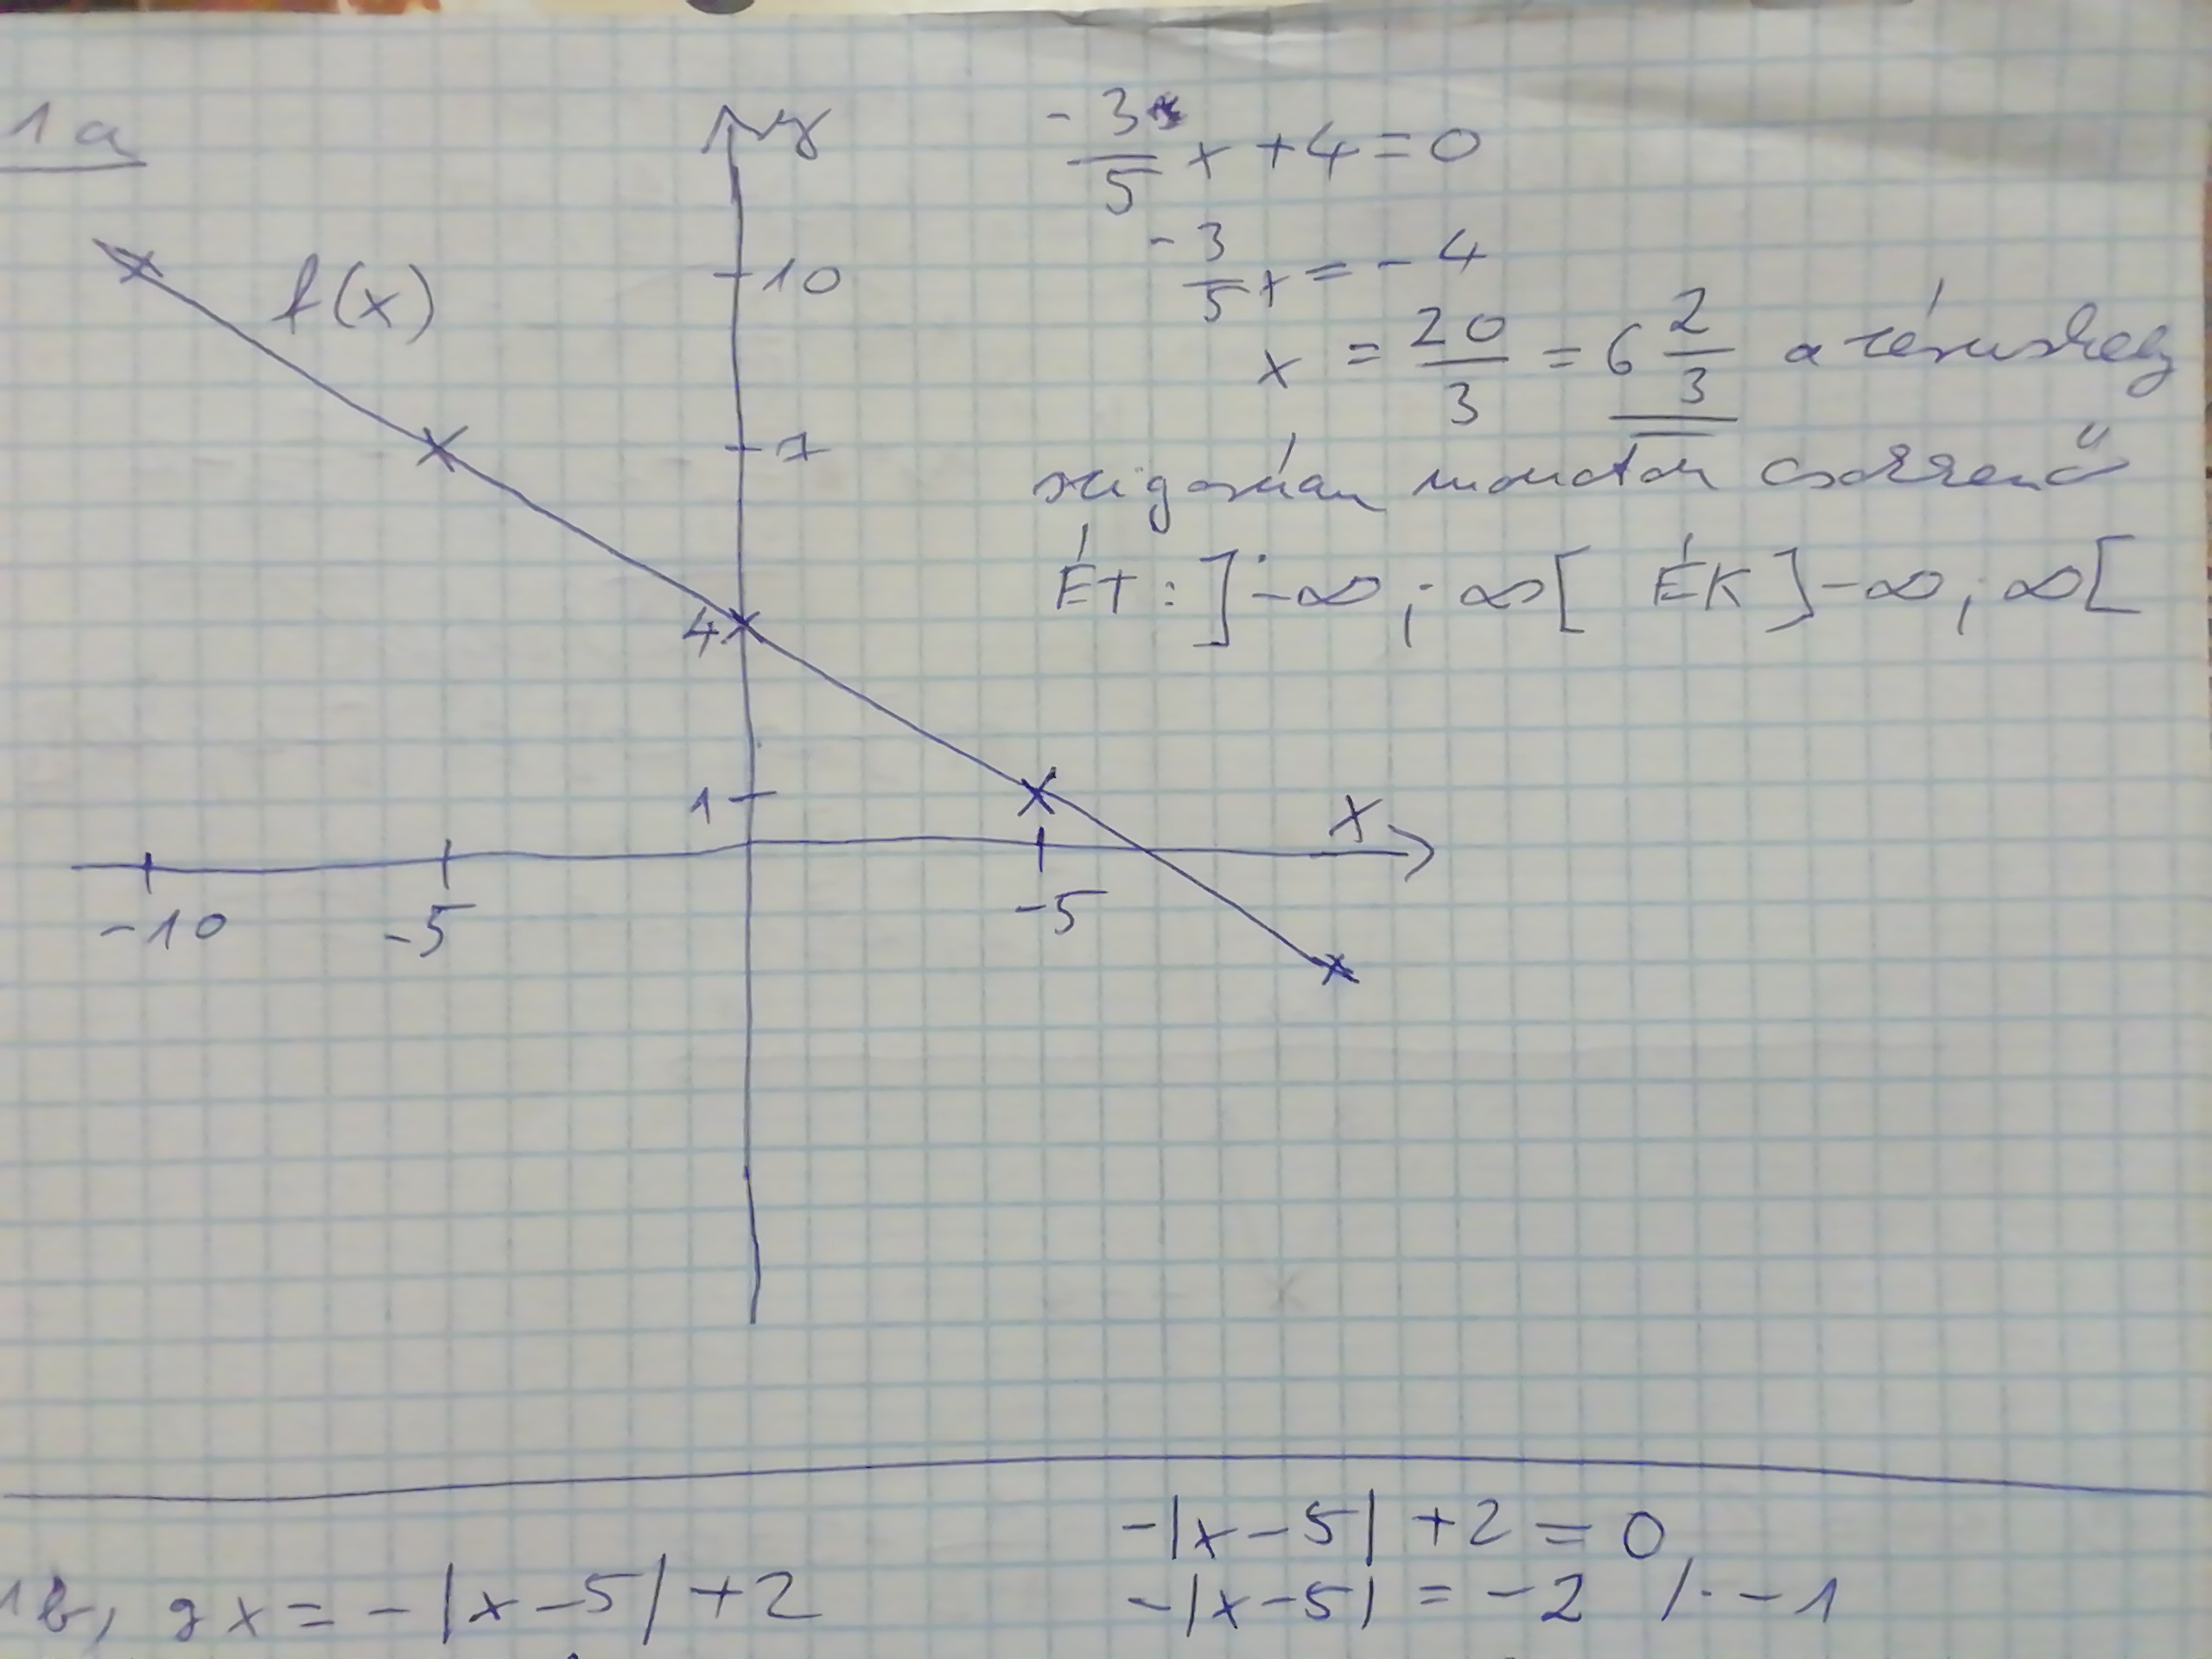 1a
y
-3/5 x + 4 = 0
-3/5 x = - 4
x = 20/3 = 6 2/3 a zérushely
szigorúan monoton csökkenő
ÉT: ]-∞ ; ∞[ ÉK ]-∞ ; ∞[
f(x)
10
7
4
1
x
-10
-5
-5
1b, gx = -|x-5| +2
-|x-5| +2 = 0
-|x-5| = -2 /· -1